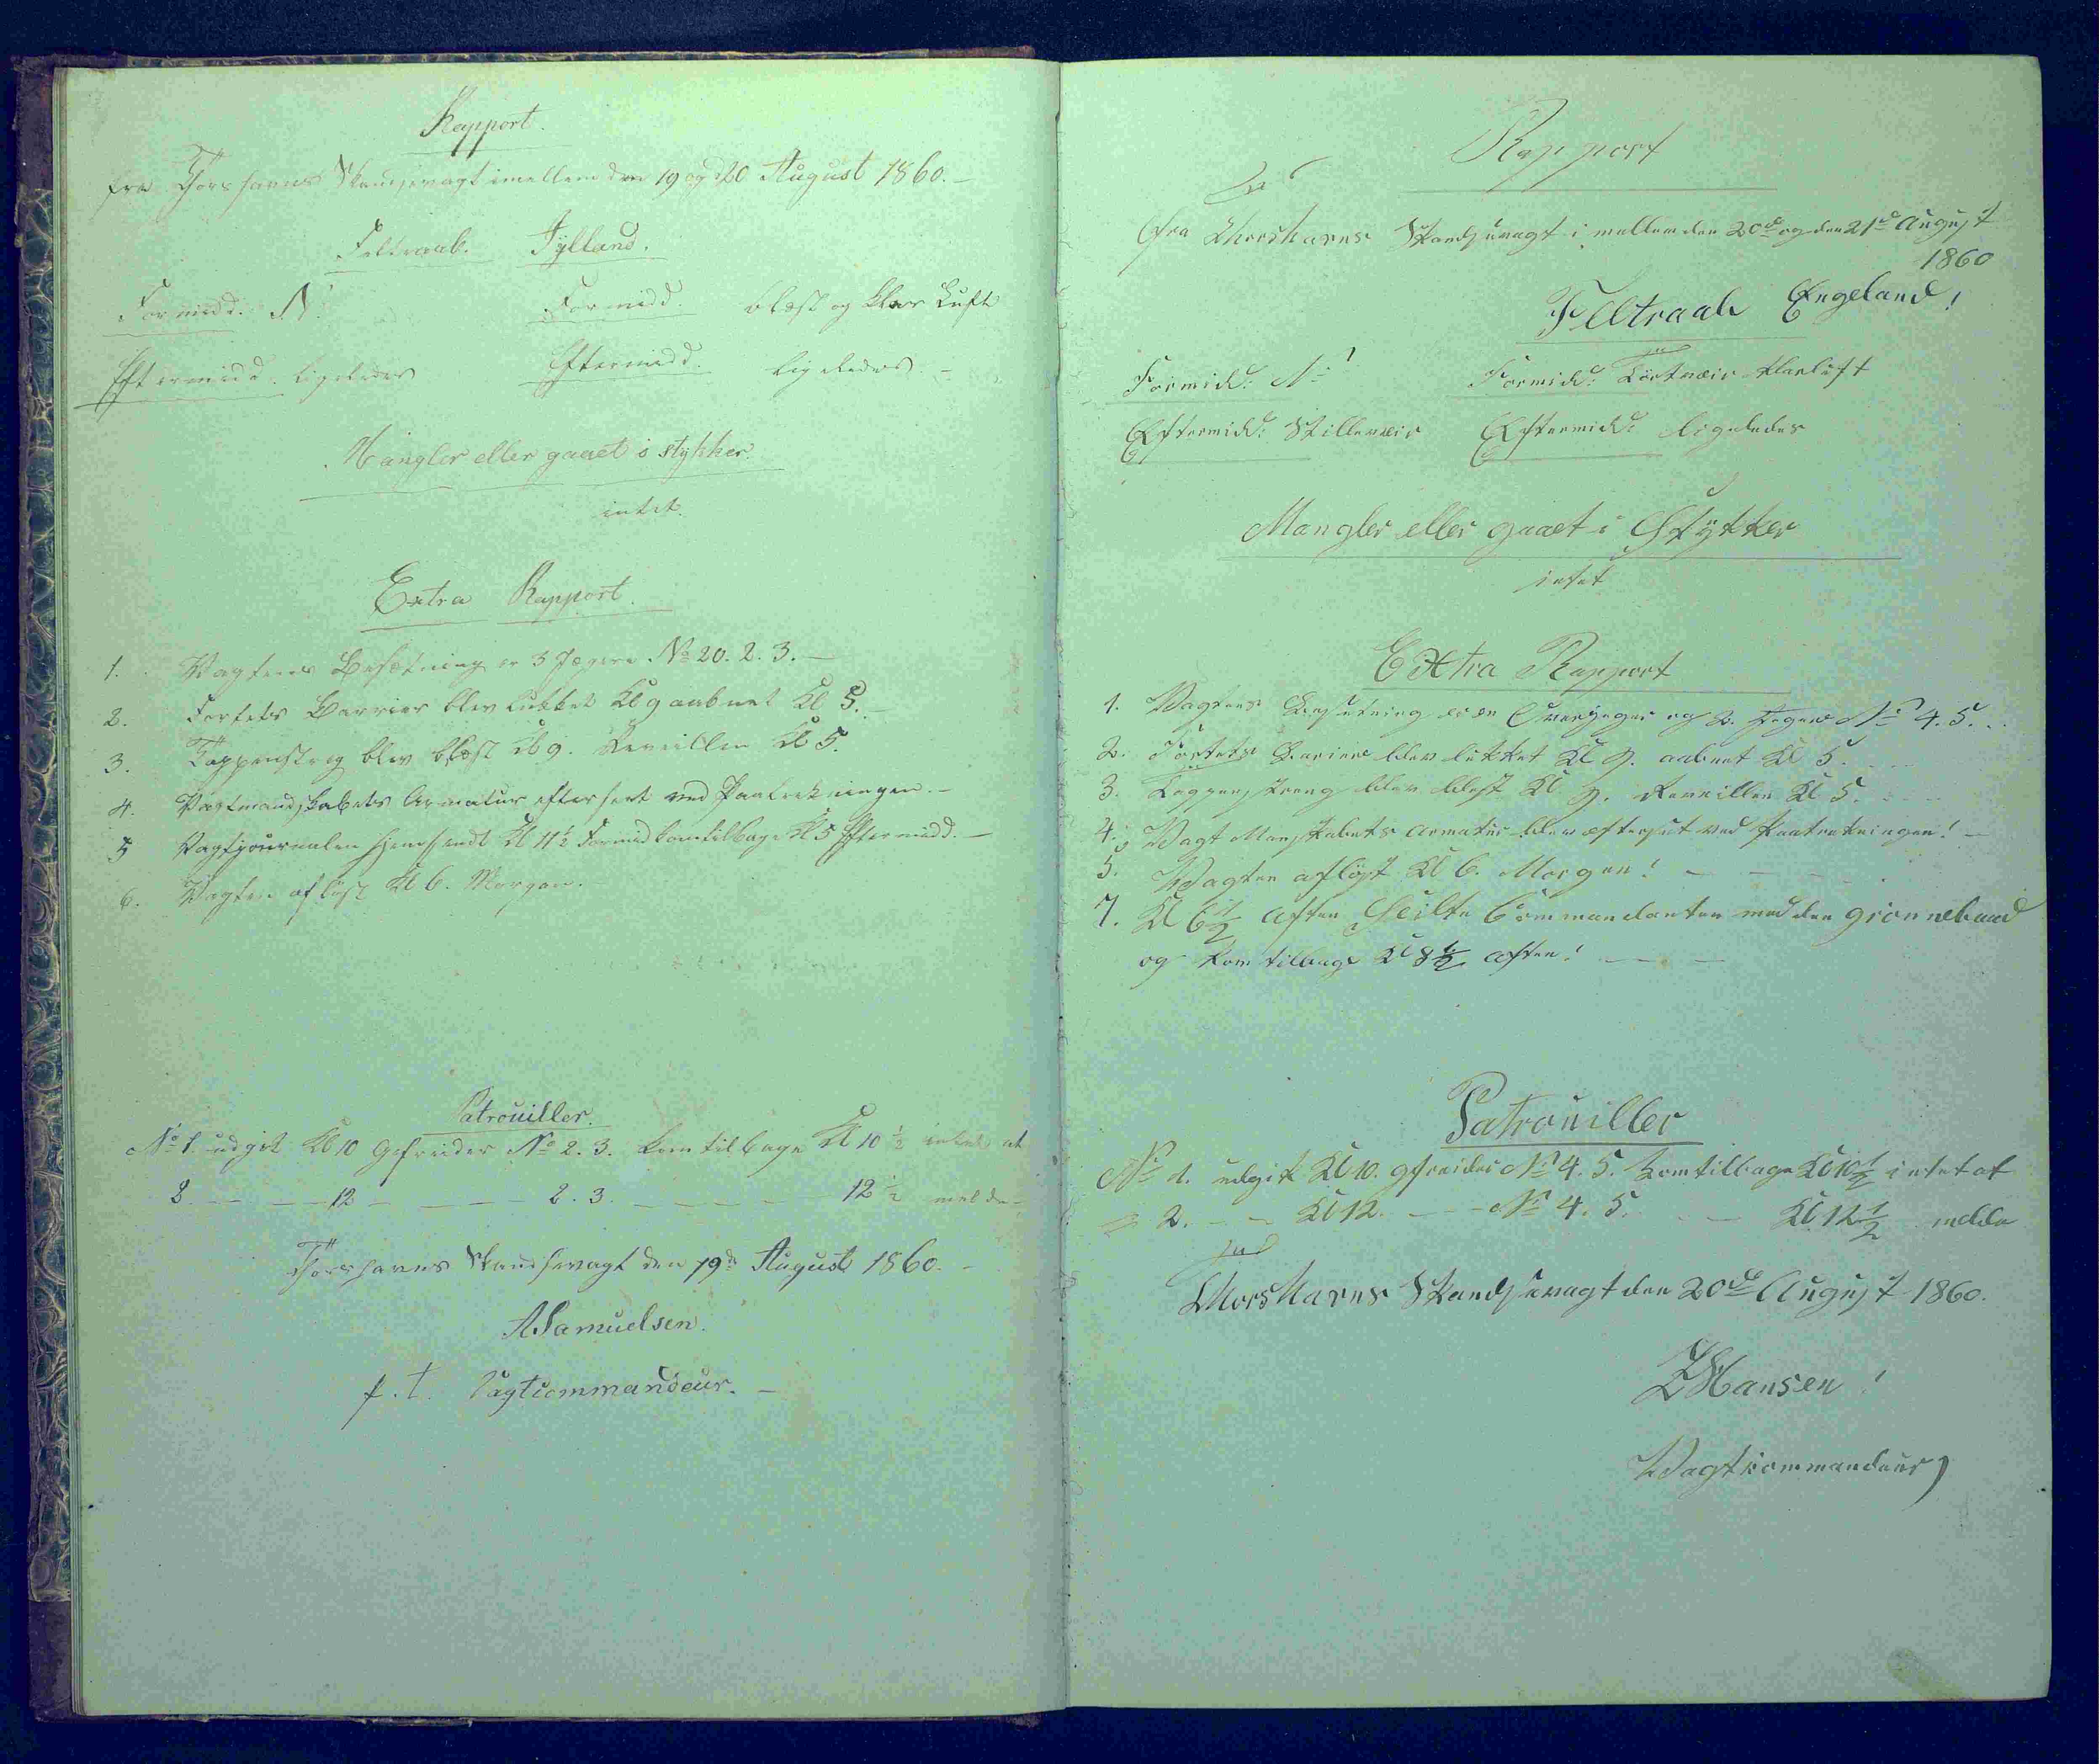 Rapport.
fra Thorshavns Skandsevagt imellem den 19 og 20 August 1860.
Feltraab. Jylland.
Formidd. N. Formidd. blæst og klar Luft
Eftermidd. ligeledes Eftermidd. ligeledes
Mangler eller gaaet i stykker.
intet.
Extra Rapport.
1. Vagtens Besætning er 3 Jægere No 20. 2. 3.
2. Fortets Barrier blev lukket Kl 9 aabnet Kl 5.
3. Tappenstreg blev blæst Kl 9. Reveillen Kl 5.
4. Vagtmandskabets Armatur efterseet ved Paatrækningen.
5 Vagtjournalen hjemsendt Kl 11½ Formid kom tilbage Kl 5 Eftermidd.
6. Vagten afløst Kl 6. Morgen.
Patrouiller.
No 1. udgik Kl 10 Gefreider No 2. 3. kom tilbage Kl 10½ intet at
2 — — 12 — — — 2. 3. — — — 12½ melde
Thorshavns Skandsevagt den 19de August 1860.
A Samuelsen.
p. t. Vagtcommandeur.
Rapport
fra Thorshavns Skandsevagt i mellem den 20de og den 21de August
1860
Feltraab Engeland!
Formidd: N Formidd: Tørtveir klarluft
Eftermidd: Stilleveir Eftermidd: ligeledes
Mangler eller gaaet i Stykker
intet
Extra Rapport
1. Vagtens Besætning er en Overjæger og 2. Jægere No 4. 5.
2. Fortets Bariere blev lukket Kl 9. aabnet Kl 5.
3. Tappenstreng blev blæst Kl 9. Reveillen Kl 5.
4. Vagt Manskabets Armatur blev efterset ved Paatrækningen!
5. Vagten afløst Kl 6. Morgen!
7. Kl 6½ Aften Seilte Commandanten med den grønnebaad
og kom tilbage Kl 8½ Aften!
Patrouiller
No 1. udgik Kl 10. gefreider No 4. 5. kom tilbage Kl 10½ intet at
2. — — Kl 12. — — No 4. 5. — Kl 12½ melde
Thorshavns Skandsevagt den 20de August 1860.
Hansen!
Vagtkommandeur